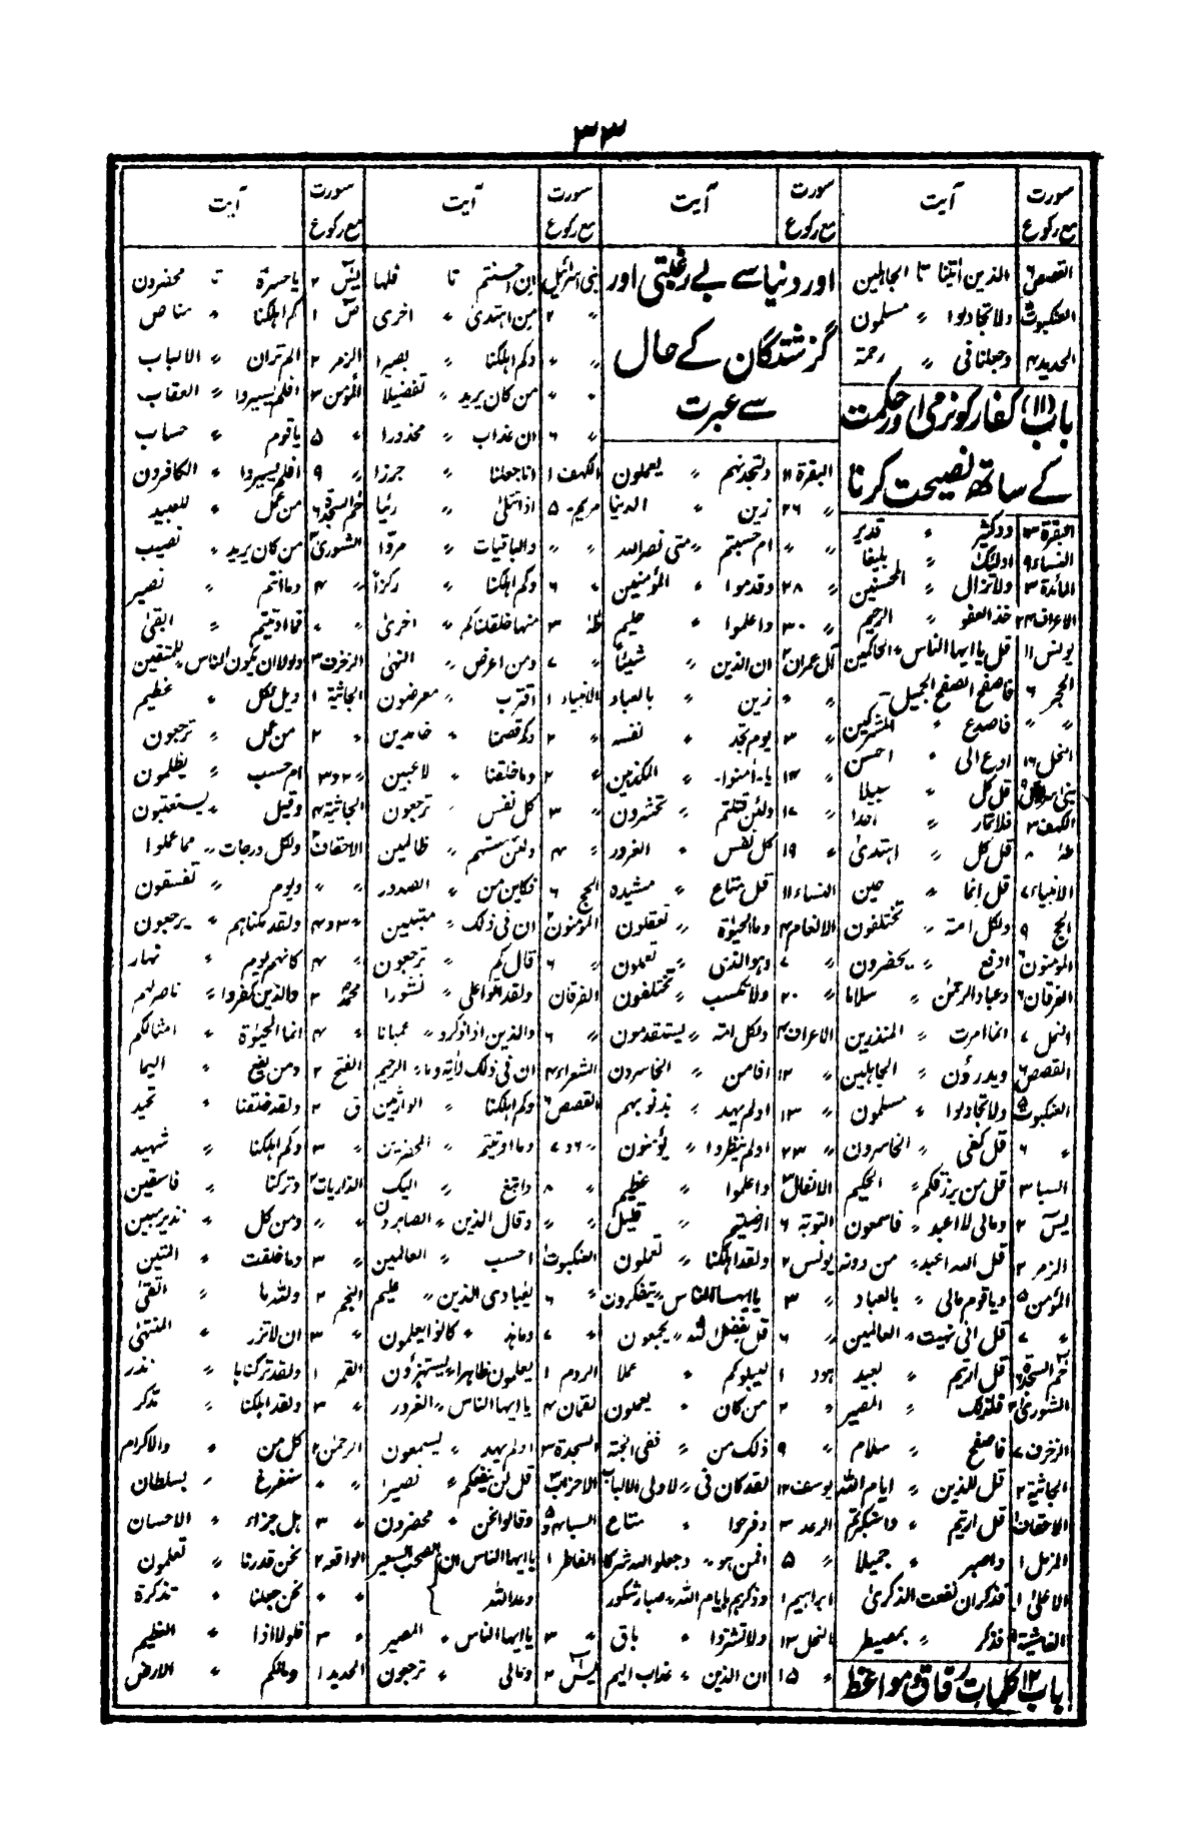 ۳۳
سورت مع رکوع آیت
القصص ۶ الذین اٰتینا تا الجاہلین
العنکبوت ۵ ولا تجادلوا 〃 مسلمون
الحدید ۴ وجعلنا فی 〃 رحمۃ
باب (۱۱) کفار کو نرمی اور حکمت
کے ساتھ نصیحت کرنا
البقرۃ ۱۳ ودکثیر 〃 قدیر
النساء ۹ اولٰئک 〃 بلیغا
المائدۃ ۳ ولا تزال 〃 المحسنین
الاعراف ۲۴ خذ العفو 〃 الرحیم
یونس ۱۱ قل یا ایہا الناس 〃 الحاکمین
الحجر ۶ فاصفح الصفح الجمیل
〃 〃 فاصدع 〃 المشرکین
النحل ۱۶ ادع الی 〃 احسن
بنی اسرائیل ۹ قل کل 〃 سبیلا
الکہف ۳ فلا تمار 〃 احدا
طہٰ ۸ قل کل 〃 اہتدیٰ
الانبیاء ۷ قل انما 〃 حین
الحج ۹ ولکل امۃ 〃 تختلفون
المومنون ۶ ادفع 〃 یحضرون
الفرقان ۶ وعباد الرحمٰن 〃 سلاما
النمل ۷ انما امرت 〃 المنذرین
القصص ۶ ویدرؤن 〃 الجاہلین
العنکبوت ۵ ولا تجادلوا 〃 مسلمون
〃 ۶ قل کفی 〃 الخاسرون
السبا ۳ قل من یرزقکم 〃 الحکیم
یٰسٓ ۲ ومالی لا اعبد 〃 فاسمعون
الزمر ۲ قل اللہ اعبد 〃 من دونہ
المؤمن ۵ ویا قوم مالی 〃 بالعباد
〃 ۷ قل انی نہیت 〃 العالمین
حٰم السجدۃ ۶ قل ارءیتم 〃 بعید
الشوریٰ ۲ فلذلک 〃 المصیر
الزخرف ۷ فاصفح 〃 سلام
الجاثیۃ ۲ قل للذین 〃 ایام اللہ
الاحقاف ۱ قل ارءیتم 〃 واستکبرتم
المزمل ۱ واصبر 〃 جمیلا
الاعلیٰ ۱ فذکر ان نفعت الذکریٰ
الغاشیۃ ۱ فذکر 〃 بمصیطر
باب ۱۲ کلمات رقاق ومواعظ
سورت مع رکوع آیت
اور دنیا سے بے رغبتی اور
گزشتگان کے حال
سے عبرت
البقرۃ ۱۱ ولتجدنہم 〃 یعملون
〃 ۲۶ زین 〃 الدنیا
〃 〃 ام حسبتم 〃 متی نصر اللہ
〃 ۲۸ وقدموا 〃 المؤمنین
〃 ۳۰ واعلموا 〃 حلیم
آل عمران ۲ ان الذین 〃 شیئا
〃 〃 زین 〃 بالعباد
〃 ۳ یوم تجد 〃 نفسہ
〃 ۱۴ یا۔امنوا۔ 〃 المکذبین
〃 ۱۷ ولئن قتلتم 〃 تحشرون
〃 ۱۹ کل نفس 〃 الغرور
النساء ۱۱ قل متاع 〃 مشیدہ
الانعام ۴ وما الحیوٰۃ 〃 تعقلون
〃 ۷ وہوالذی 〃 تعملون
〃 ۲۰ ولا تکسب 〃 تختلفون
الاعراف ۴ ولکل امۃ 〃 یستقدمون
〃 ۱۲ افامن 〃 الخاسرون
〃 ۱۳ اولم یہد 〃 بذنوبہم
〃 ۲۳ اولم ینظروا 〃 یؤمنون
الانفال ۳ واعلموا 〃 عظیم
التوبۃ ۶ ارضیتم 〃 قلیل
یونس ۲ ولقد اہلکنا 〃 تعملون
〃 ۳ یا ایہا الناس 〃 یتفکرون
〃 ۶ قل بفضل اللہ 〃 یجمعون
ہود ۱ لیبلوکم 〃 عملا
〃 ۲ من کان 〃 یعملون
〃 ۹ ذلک من 〃 ففی الجنۃ
یوسف ۱۲ لقد کان فی 〃 لاولی الالباب
الرعد ۳ وفرحوا 〃 متاع
〃 ۵ افمن ہو 〃 وجعلوا للہ شرکا
ابراہیم ۱ وذکرہم بایام اللہ 〃 صبار شکور
النحل ۱۳ ولا تشتروا 〃 باق
〃 ۱۵ ان الذین 〃 عذاب الیم
سورت مع رکوع آیت
بنی اسرائیل ۱ ان احسنتم تا فلہا
〃 ۲ من اہتدیٰ 〃 اخری
〃 〃 وکم اہلکنا 〃 بصیرا
〃 〃 من کان یرید 〃 تفضیلا
〃 ۶ ان عذاب 〃 محذورا
الکہف ۱ انا جعلنا 〃 جرزا
مریم ۵ اذا تتلیٰ 〃 رئیا
〃 〃 والباقیات 〃 مردا
〃 ۶ وکم اہلکنا 〃 رکزا
طہٰ ۳ منہا خلقناکم 〃 اخریٰ
〃 ۷ ومن اعرض 〃 النہیٰ
الانبیاء ۱ اقترب 〃 معرضون
〃 ۲ وکم قصمنا 〃 خامدین
〃 ۲ وما خلقنا 〃 لاعبین
〃 ۳ کل نفس 〃 ترجعون
〃 ۴ ولئن مستہم 〃 ظالمین
الحج ۶ فکاین من 〃 الصدور
المؤمنون ۲ ان فی ذلک 〃 مبتلین
〃 ۶ قال کم 〃 ترجعون
الفرقان ۴ ولقد اتوا علی 〃 نشورا
〃 ۶ والذین اذا ذکروا 〃 عمیانا
الشعراء ۴ ان فی ذلک لاٰیۃ وما 〃 الرحیم
القصص ۶ وکم اہلکنا 〃 الوارثین
〃 ۶ و ۷ وما اوتیتم 〃 المحضرین
〃 ۸ وابتغ 〃 الیک
〃 〃 وقال الذین 〃 الصابرون
العنکبوت ۱ احسب 〃 العالمین
〃 ۶ یٰعبادی الذین 〃 علیم
〃 ۷ وما ہذہ 〃 کانوا یعلمون
الروم ۱ یعلمون ظاہرا 〃 یستہزؤن
لقمان ۴ یا ایہا الناس 〃 الغرور
السجدۃ ۳ اولم یہد 〃 یسمعون
الاحزاب ۲ قل لن ینفعکم 〃 نصیرا
السبا ۴ و ۵ وقالوا نحن 〃 محضرون
الفاطر ۱ یا ایہا الناس ان وعد اللہ 〃 اصحٰب السعیر
〃 ۳ یا ایہا الناس 〃 المصیر
یٰسٓ ۲ ومالی 〃 ترجعون
سورت مع رکوع آیت
یٰسٓ ۲ یا حسرۃ تا محضرون
صٓ ۱ کم اہلکنا 〃 مناص
الزمر ۲ الم تر ان 〃 الالباب
المؤمن ۳ افلم یسیروا 〃 العقاب
〃 ۵ یا قوم 〃 حساب
〃 ۹ افلم یسیروا 〃 الکافرون
حٰم السجدۃ ۶ من عمل 〃 للعبید
الشوریٰ ۳ من کان یرید 〃 نصیب
〃 ۴ وما انتم 〃 نصیر
〃 〃 فما اوتیتم 〃 ابقیٰ
الزخرف ۳ ولولا ان یکون الناس 〃 للمتقین
الجاثیۃ ۱ ویل لکل 〃 عظیم
〃 ۲ من عمل 〃 ترجعون
〃 ۲ و ۳ ام حسب 〃 یظلمون
الجاثیۃ ۴ وقیل 〃 یستعتبون
الاحقاف ۲ ولکل درجات 〃 مما عملوا
〃 〃 ویوم 〃 تفسقون
〃 ۳ و ۴ ولقد مکناہم 〃 یرجعون
〃 ۴ کانہم یوم 〃 نہار
محمدؐ ۲ والذین کفروا 〃 ناصر لہم
〃 ۴ انما الحیوٰۃ 〃 امثالکم
الفتح ۲ ومن یطع 〃 الیما
ق ۲ ولقد خلقنا 〃 تحید
〃 ۳ وکم اہلکنا 〃 شہید
الذاریات ۲ وترکنا 〃 فاسقین
〃 〃 ومن کل 〃 نذیر مبین
〃 ۳ وما خلقت 〃 المتین
النجم ۲ وللہ ما 〃 اتقیٰ
〃 ۳ ان لا تزر 〃 المنتہیٰ
القمر ۱ ولقد ترکناہا 〃 نذر
〃 ۳ ولقد اہلکنا 〃 مدکر
الرحمٰن ۲ کل من 〃 والاکرام
〃 〃 سنفرغ 〃 بسلطان
〃 ۳ ہل جزاء 〃 الاحسان
الواقعہ ۲ نحن قدرنا 〃 تعلمون
〃 〃 نحن جعلنا 〃 تذکرۃ
〃 ۳ فلولا اذا 〃 العظیم
الحدید ۱ ومالکم 〃 الارض